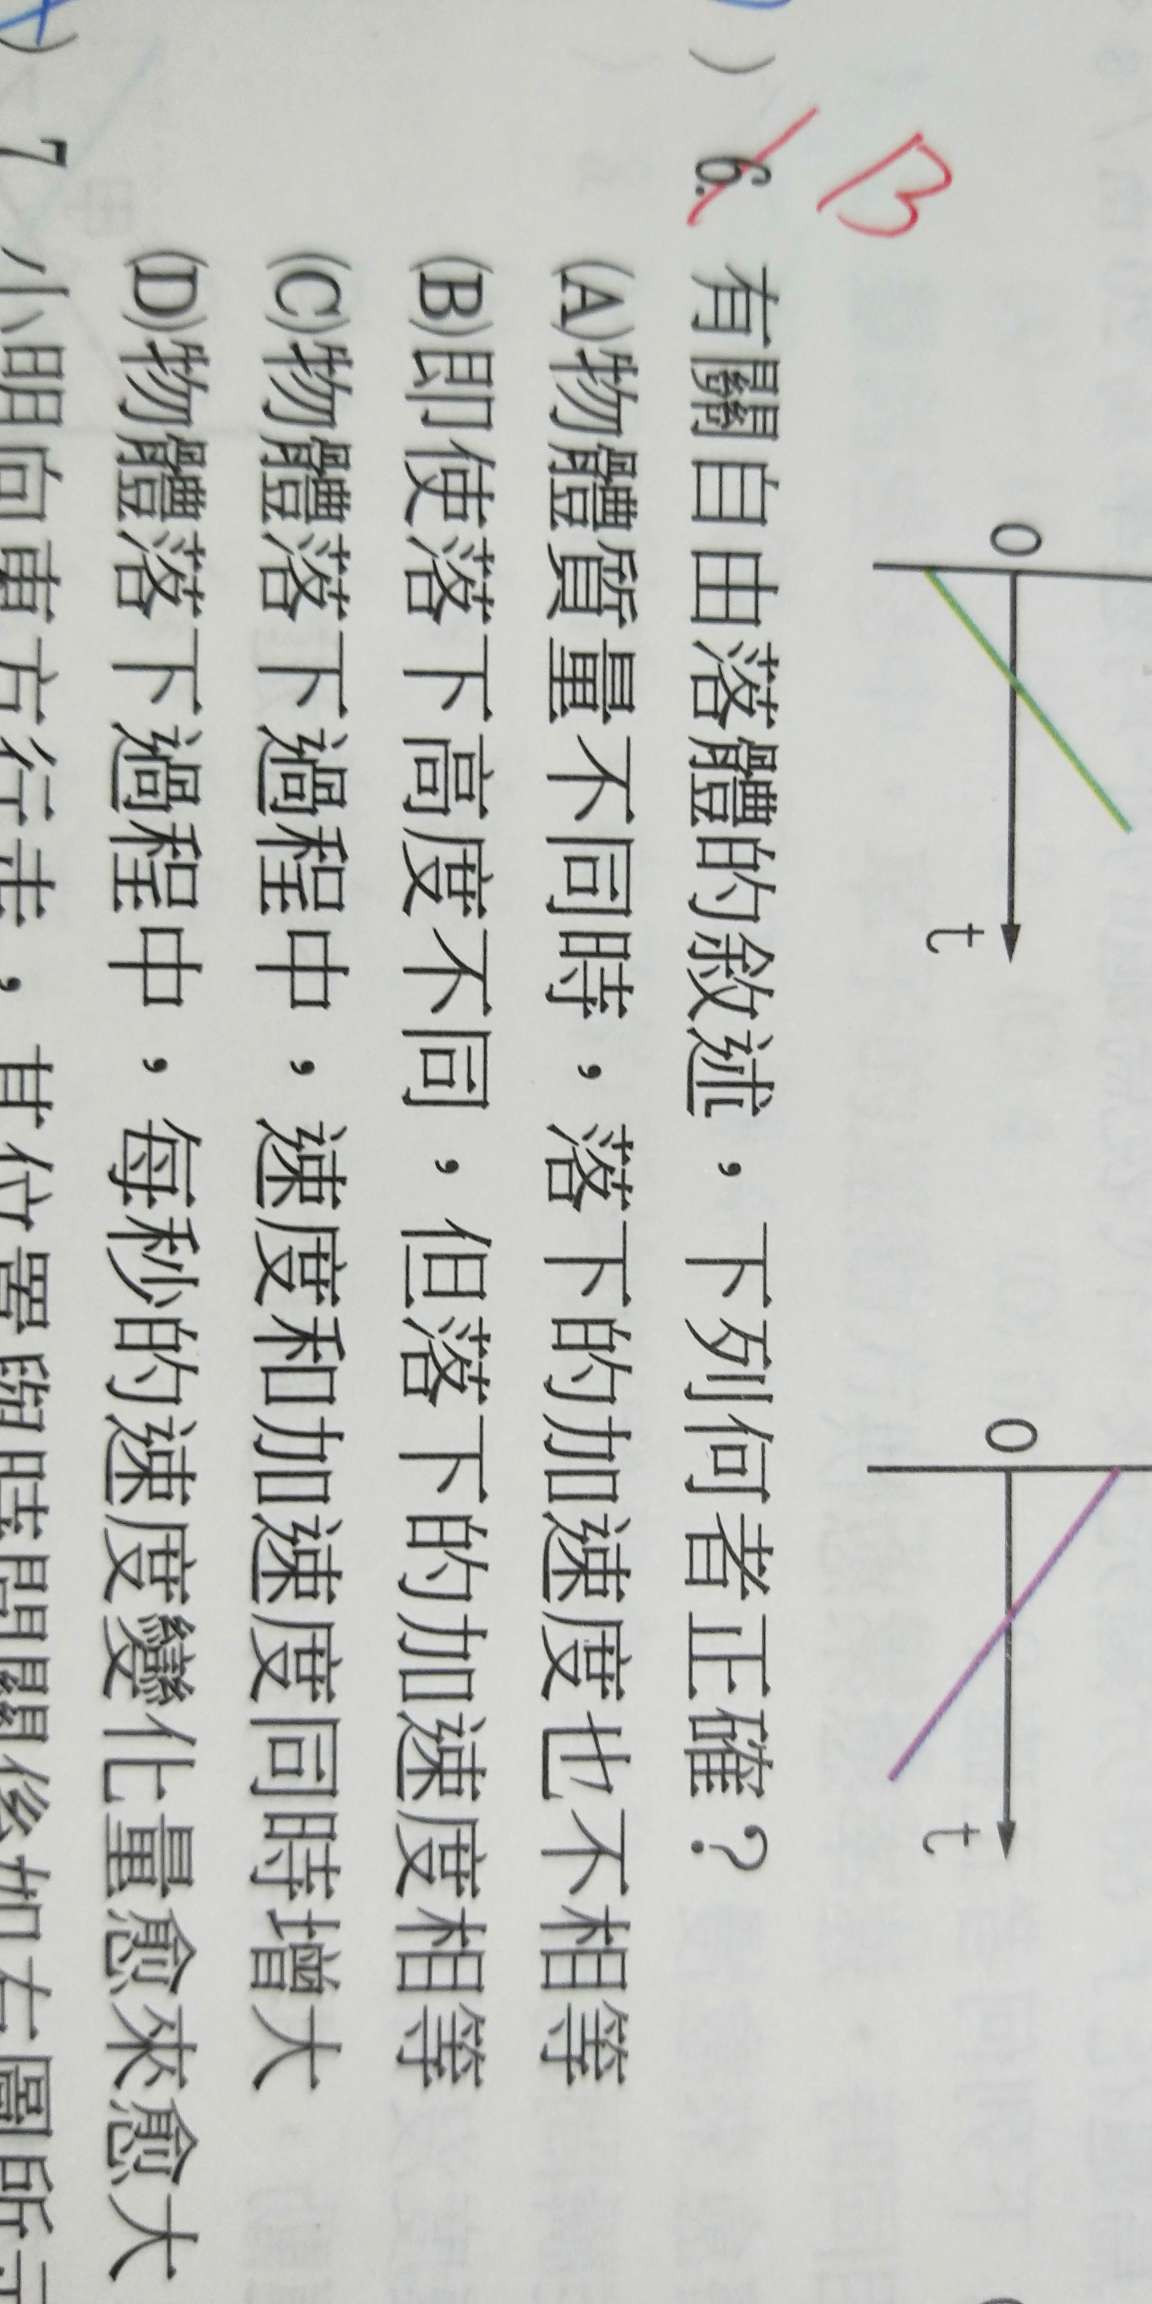 0
t
0
t
B
) 6. 有關自由落體的敘述，下列何者正確？
(A)物體質量不同時，落下的加速度也不相等
(B)即使落下高度不同，但落下的加速度相等
(C)物體落下過程中，速度和加速度同時增大
(D)物體落下過程中，每秒的速度變化量愈來愈大
) 7. 小明向東方行走，其位置與時間關係如右圖所示